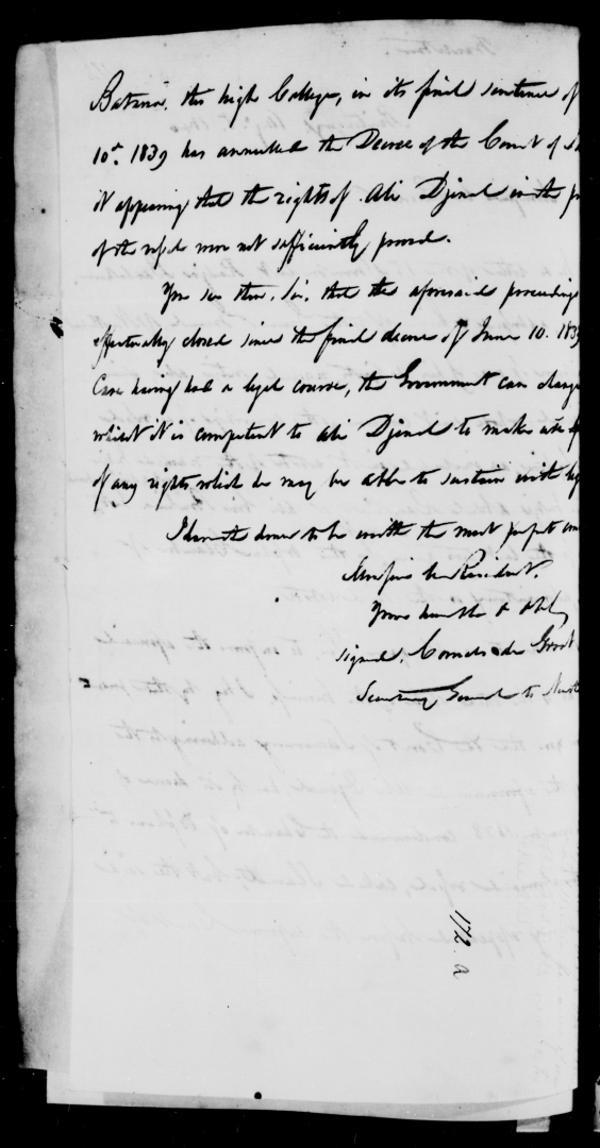 Batavia, this high College, in its final sentence of
10th 1839 has annulled the Decree of the Court of
it appearing that the rights of Ali Djinal in the
of the vessel were not sufficiently proved.
You see then, Sir, that the aforesaid proceedings
effectually closed since the final decree of June 10. 1839
Case having had a legal course, the Government can change
whilst it is competent to Ali Djinal to make use
of any rights which he may be able to sustain with
I have the honor to be with the most perfect
Resident.
Yours humble &
signed, Cornets de Groot
Secretary General to
172. a